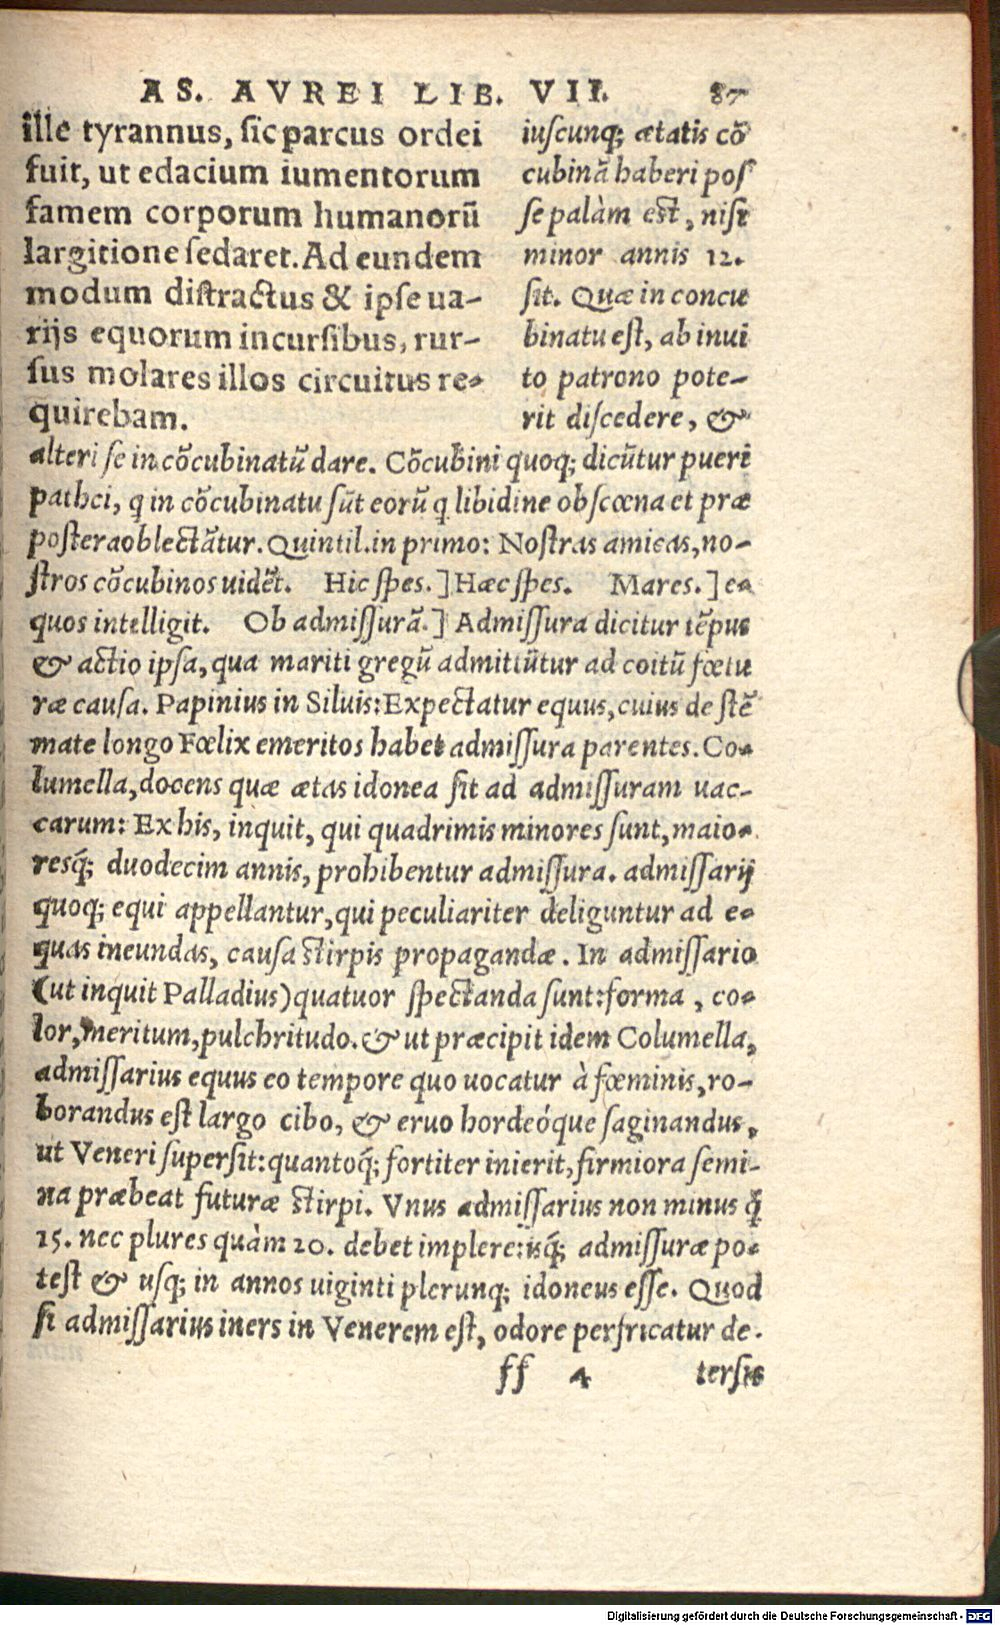 AS. AVREI LIB. VII. 87
ille tyrannus, sic parcus ordei
fuit, ut edacium iumentorum
famem corporum humanorū
largitione sedaret. Ad eundem
modum distractus & ipse ua-
rijs equorum incursibus, rur-
sus molares illos circuitus re-
quirebam.
iuscunq; ætatis cō
cubinā haberi pos
se palàm est, nisi
minor annis 12.
sit. Quæ in concu
binatu est, ab inui
to patrono pote-
rit discedere, &
alteri se in cōcubinatū dare. Cōcubini quoq; dicūtur pueri
pathci, q in cōcubinatu sūt eorū q libidine obscœna et præ
postera oblectātur. Quintil. in primo: Nostras amicas, no-
stros cōcubinos uidēt. Hic spes.] Hæc spes. Mares.] e-
quos intelligit. Ob admissurā.] Admissura dicitur tēpus
& actio ipsa, qua mariti gregū admittūtur ad coitū fœtu
ræ causa. Papinius in Siluis: Expectatur equus, cuius de stē
mate longo Fœlix emeritos habet admissura parentes. Co-
lumella, docens quæ ætas idonea sit ad admissuram uac-
carum: Ex his, inquit, qui quadrimis minores sunt, maio-
resq̃; duodecim annis, prohibentur admissura. admissarij
quoq; equi appellantur, qui peculiariter deliguntur ad e-
quas ineundas, causa stirpis propagandæ. In admissario
(ut inquit Palladius) quatuor spectanda sunt: forma, co-
lor, meritum, pulchritudo. & ut præcipit idem Columella,
admissarius equus eo tempore quo uocatur à fœminis, ro-
borandus est largo cibo, & eruo hordeóque saginandus,
ut Veneri supersit: quantoq̃; fortiter inierit, firmiora semi-
na præbeat futuræ stirpi. Vnus admissarius non minus q̃
15. nec plures quàm 20. debet implere: isq̃; admissuræ po-
test & usq; in annos uiginti plerunq; idoneus esse. Quod
si admissarius iners in Venerem est, odore perfricatur de-
ff 4 tersis
Digitalisierung gefördert durch die Deutsche Forschungsgemeinschaft - DFG